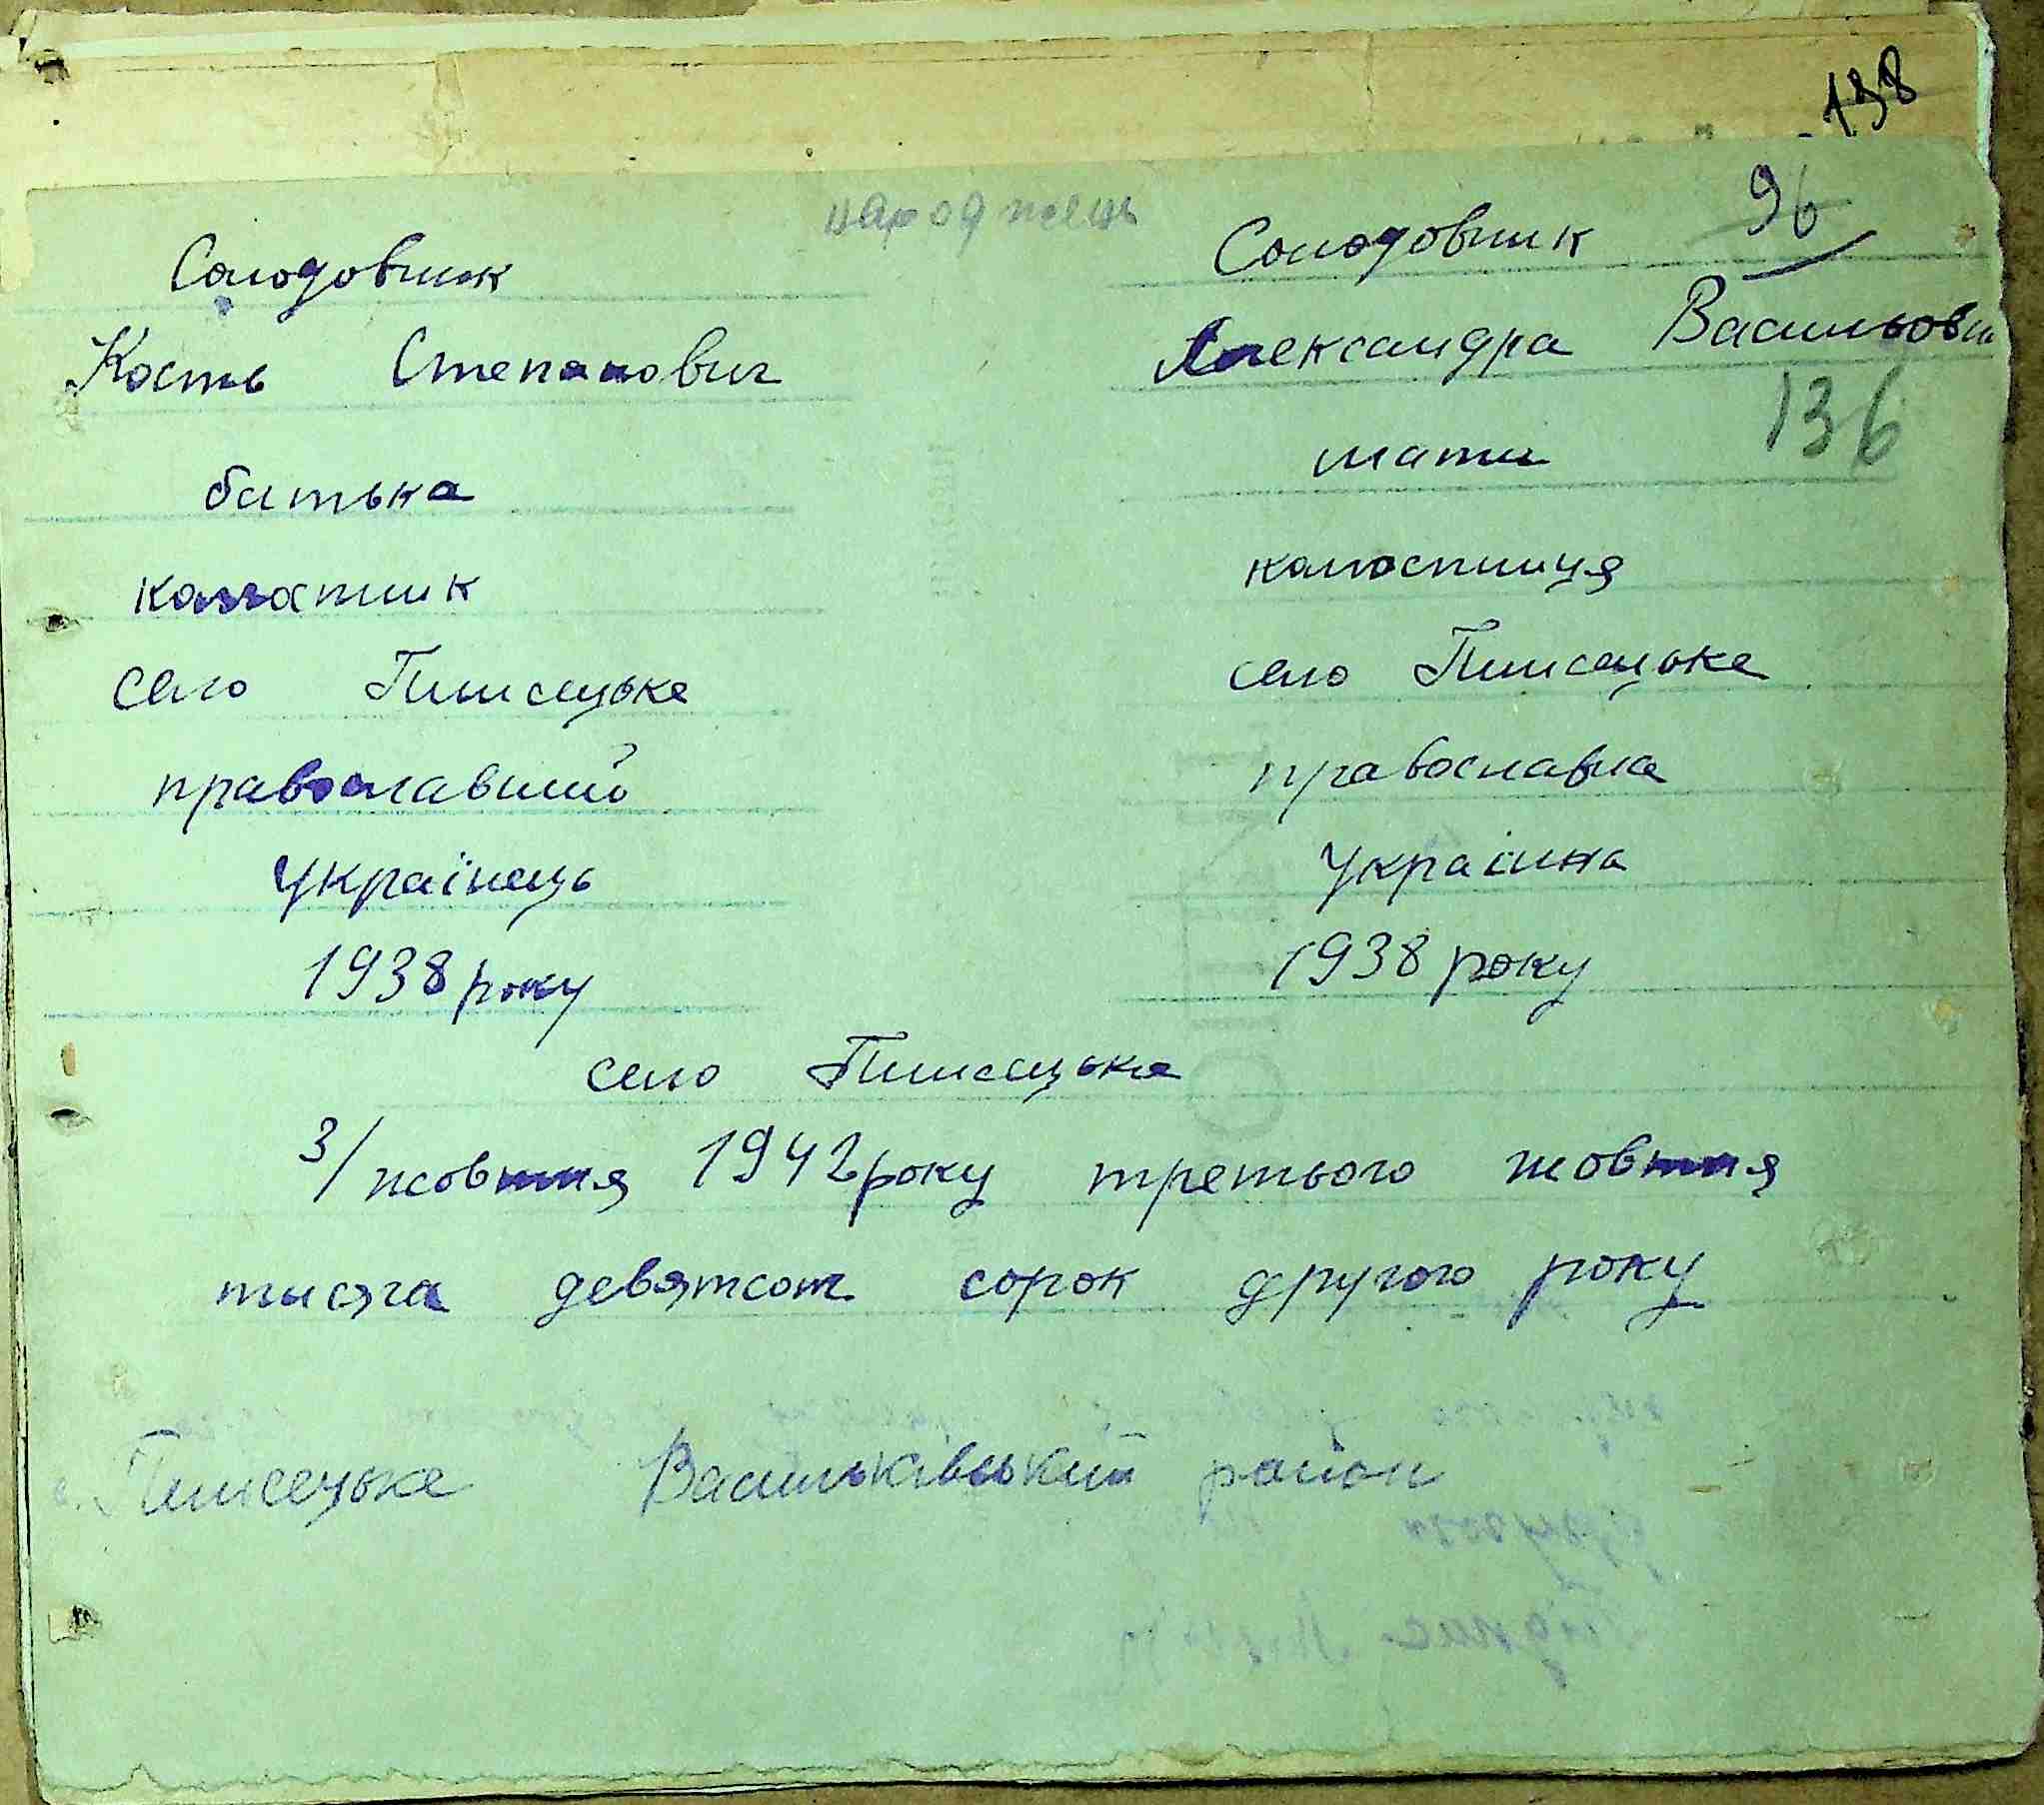 138
народжець
96
Солодовник Солодовник
Кость Степанович Александра Васильовн
136
батька мати
колгостник колгоспниця
село Плисецьке село Плисецьке
православний православна
Українець Украінка
1938 року 1938 року
село Плисецьке
3/жовтня 1942 року третього жовтня
тисяча девятсот сорок другого року
с. Плисецьке Васильківський район